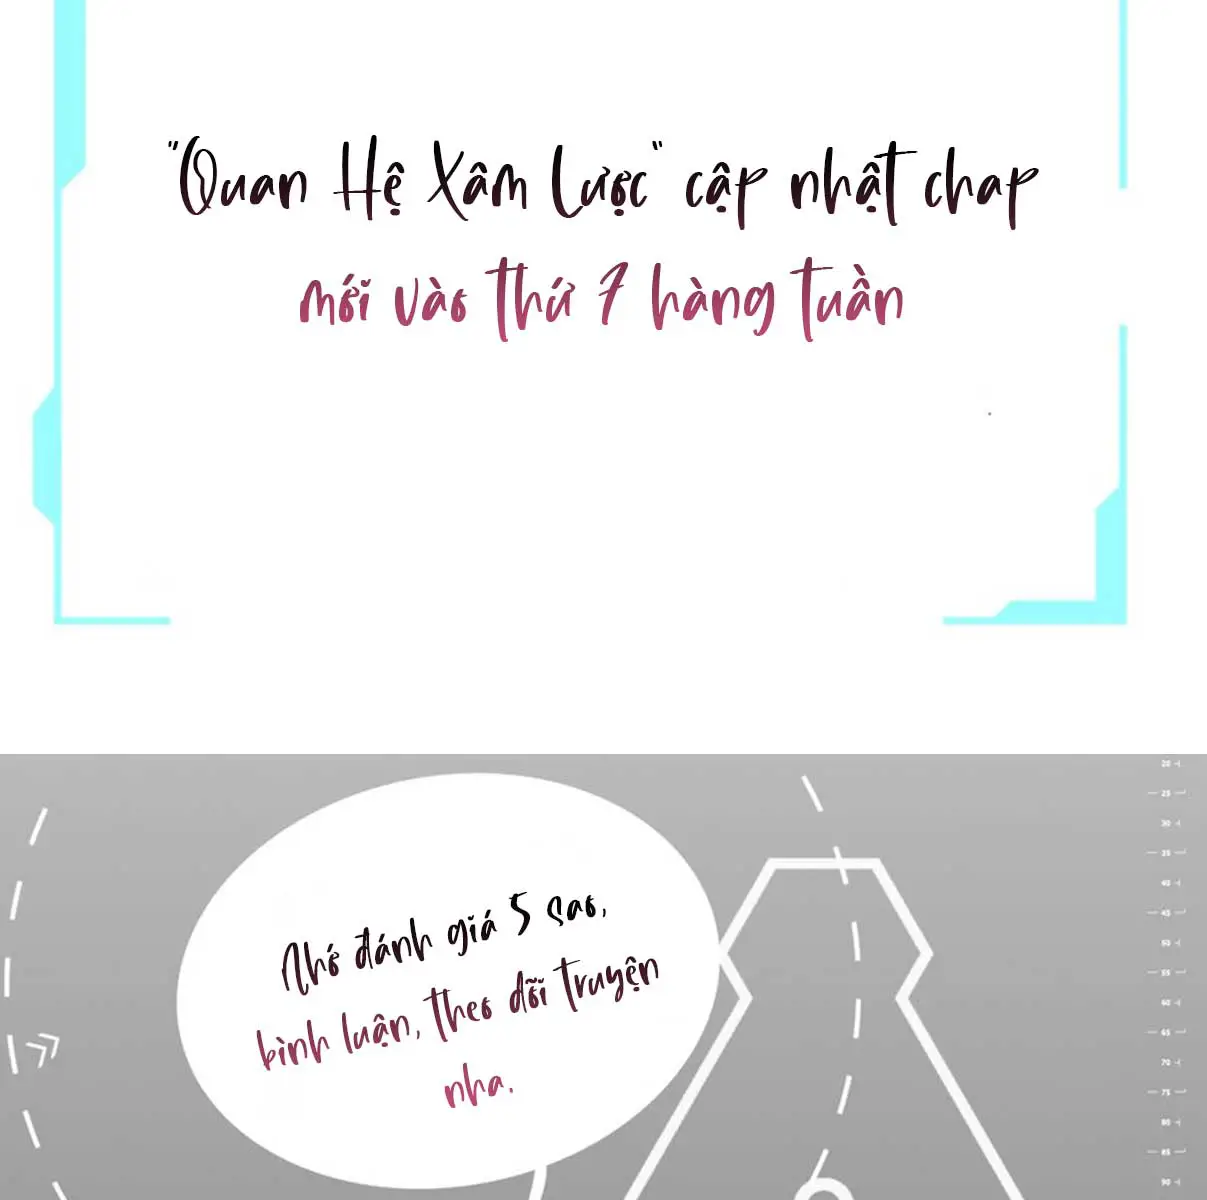 "Quan Hệ Xâm Lược" cập nhật chap
mới vào thứ 7 hàng tuần
20
25
30
35
40
45
50
55
60
65
70
75
80
85
90
Nhớ đánh giá 5 sao,
bình luận, theo dõi truyện
nha.